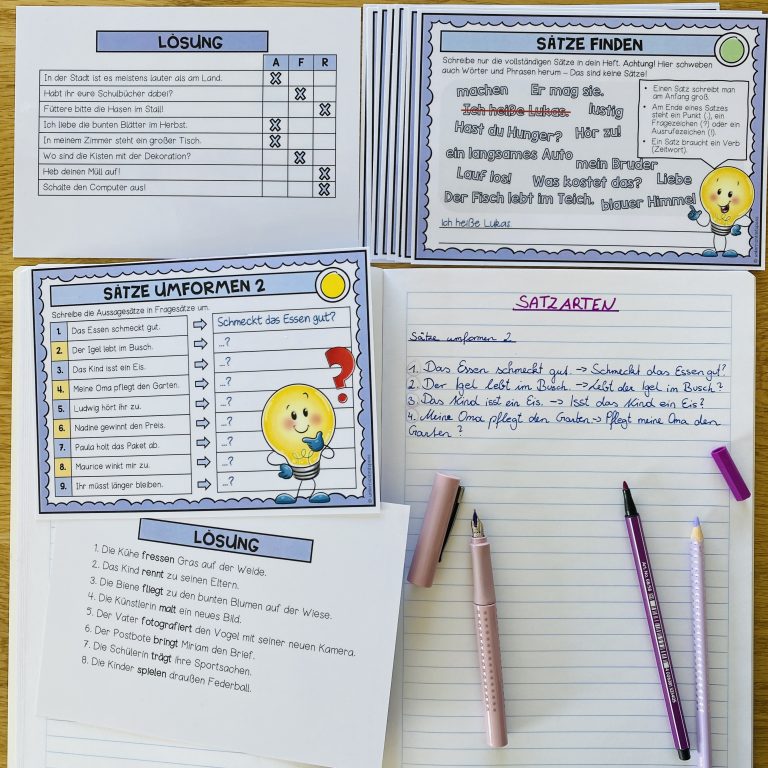 LÖSUNG
A F R
In der Stadt ist es meistens lauter als am Land.
Habt ihr eure Schulbücher dabei?
Füttere bitte die Hasen im Stall!
Ich liebe die bunten Blätter im Herbst.
In meinem Zimmer steht ein großer Tisch.
Wo sind die Kisten mit der Dekoration?
Heb deinen Müll auf!
Schalte den Computer aus!
SÄTZE FINDEN
Schreibe nur die vollständigen Sätze in dein Heft. Achtung! Hier schweben
auch Wörter und Phrasen herum – Das sind keine Sätze!
machen Er mag sie.
Ich heiße Lukas. lustig
Hast du Hunger? Hör zu!
ein langsames Auto mein Bruder
Lauf los! Was kostet das? Liebe
Der Fisch lebt im Teich. blauer Himmel
Ich heiße Lukas.
• Einen Satz schreibt man
am Anfang groß.
• Am Ende eines Satzes
steht ein Punkt (.), ein
Fragezeichen (?) oder ein
Ausrufezeichen (!).
• Ein Satz braucht ein Verb
(Zeitwort).
SÄTZE UMFORMEN 2
Schreibe die Aussagesätze in Fragesätze um.
1. Das Essen schmeckt gut. Schmeckt das Essen gut?
2. Der Igel lebt im Busch. ...?
3. Das Kind isst ein Eis. ...?
4. Meine Oma pflegt den Garten. ...?
5. Ludwig hört ihr zu. ...?
6. Nadine gewinnt den Preis. ...?
7. Paula holt das Paket ab. ...?
8. Maurice winkt mir zu. ...?
9. Ihr müsst länger bleiben. ...?
?
SATZARTEN
Sätze umformen 2
1. Das Essen schmeckt gut. → Schmeckt das Essen gut?
2. Der Igel lebt im Busch. → Lebt der Igel im Busch?
3. Das Kind isst ein Eis. → Isst das Kind ein Eis?
4. Meine Oma pflegt den Garten → Pflegt meine Oma den
Garten?
LÖSUNG
1. Die Kühe fressen Gras auf der Weide.
2. Das Kind rennt zu seinen Eltern.
3. Die Biene fliegt zu den bunten Blumen auf der Wiese.
4. Die Künstlerin malt ein neues Bild.
5. Der Vater fotografiert den Vogel mit seiner neuen Kamera.
6. Der Postbote bringt Miriam den Brief.
7. Die Schülerin trägt ihre Sportsachen.
8. Die Kinder spielen draußen Federball.